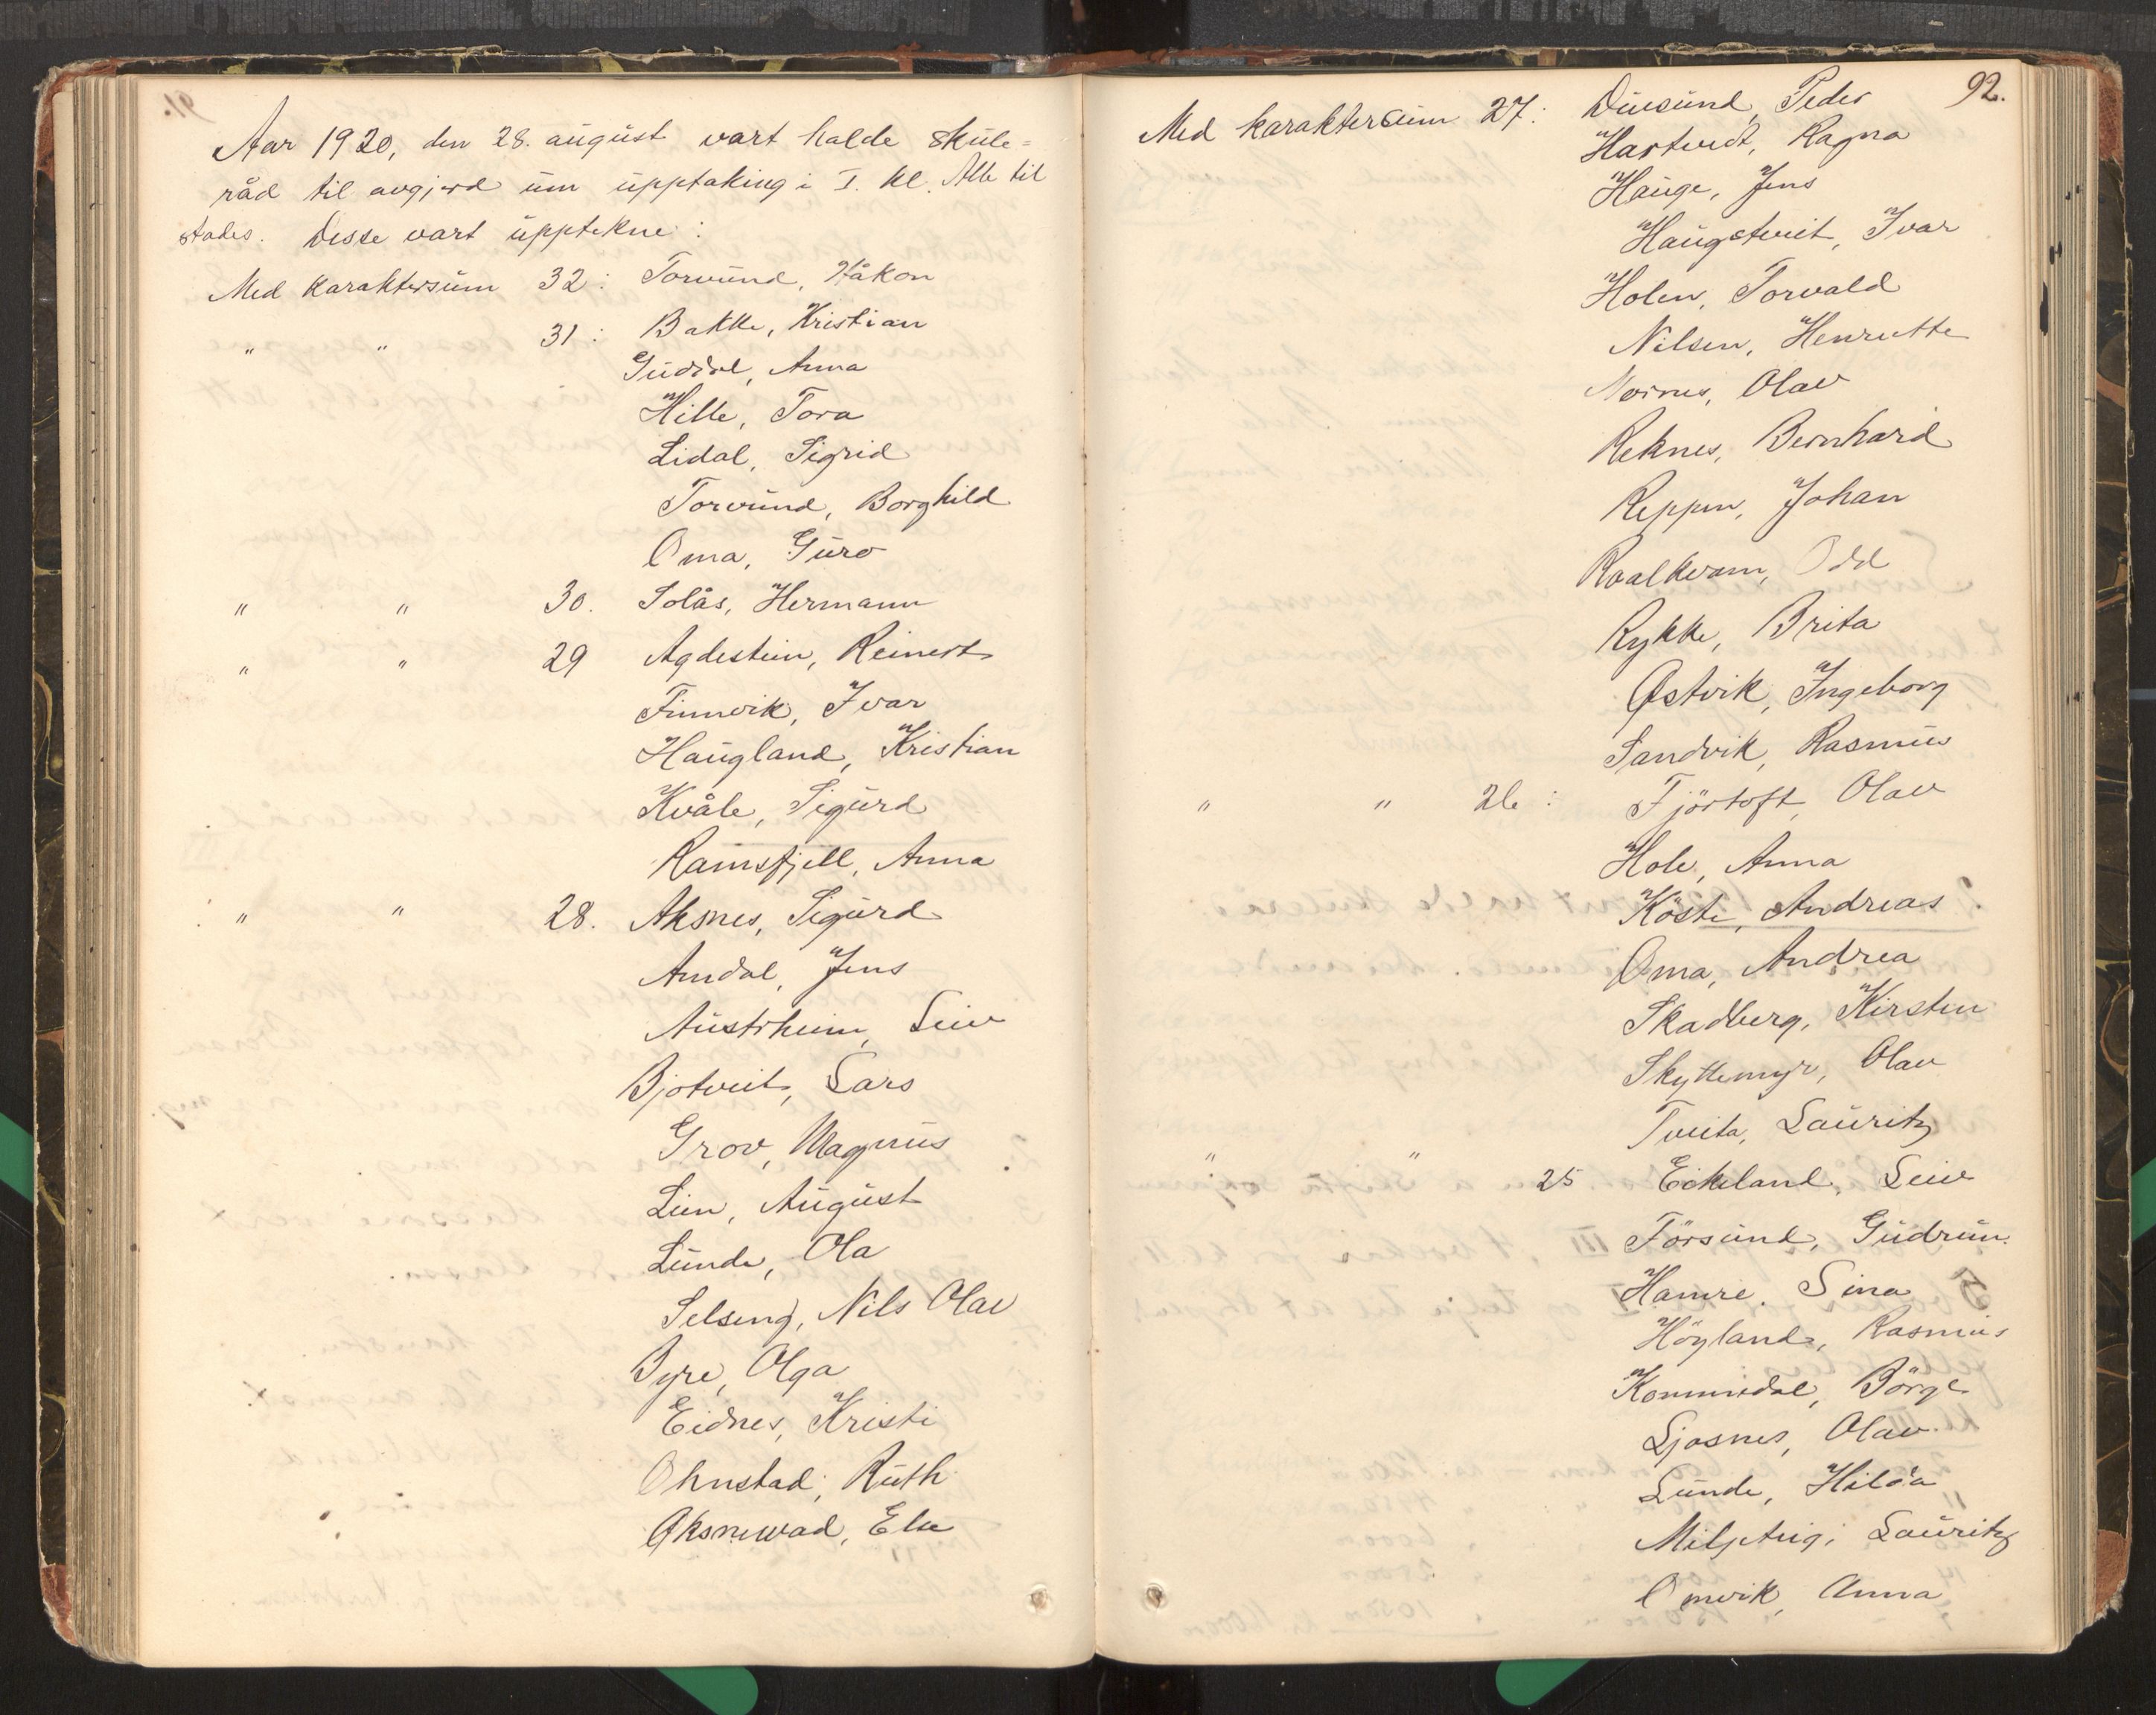 Aar 1920, den 28. august vart halde skule=
råd til avgjerd um upptaking i I. kl. Alle til
stades. Desse vart upptekne:
Med karaktersum 32: Torvund, Håkon
" " 31: Bakke, Kristian
Guddal, Anna
Hille, Tora
Lidal, Sigrid
Torvund, Borghild
Oma, Guro
" " 30. Solås, Hermann
" " 29 Agdestein, Reinert
Finnvik, Ivar
Haugland, Kristian
Kvåle, Sigurd
Ramsfjell, Anna
" " 28. Aksnes, Sigurd
Amdal, Jens
Austrheim, Leiv
Bjotveit, Lars
Grov, Magnus
Lien, August
Lunde, Ola
Selseng, Nils Olav
Byre, Olga
Eidnes, Kristi
Ohnstad, Ruth
Øksnevad, Else
92.
Med karaktersum 27: Diusund, Peder
Hartvedt, Ragna
Hauge, Jens
Haugstveit, Ivar
Holen, Torvald
Nilsen, Henriette
Nornes, Olav
Reknes, Bernhard
Reppen, Johan
Roalkvam, Odd
Rykke, Brita
Østvik, Ingeborg
Sandvik, Rasmus
" " 26: Fjörtoft, Olav
Hole, Anna
Köste, Andreas
Oma, Andrea
Skadberg, Kirsten
Skyttemyr, Olav
Tveita, Lauritz
" " 25 Eikeland, Leiv
Försund, Gudrun
Hamre, Sina
Höyland, Rasmus
Kommedal, Börge
Ljosnes, Olav
Lunde, Hilda
Lauritz
Omvik, Anna